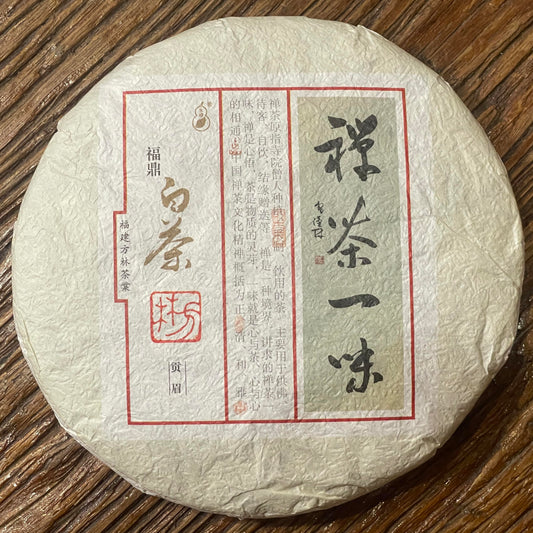 禅茶一味
禅茶原指寺院僧人种植
饮用的茶，主要用于供佛、
待客、自饮、结缘赠送等。禅是一种境界。讲求的禅茶一
味，禅是心悟，茶是物质的灵芽，一味就是心与茶、心与心
的相通。中国禅茶文化精神概括为正、清、和、雅
福鼎
白茶
贡眉
福建方林茶业